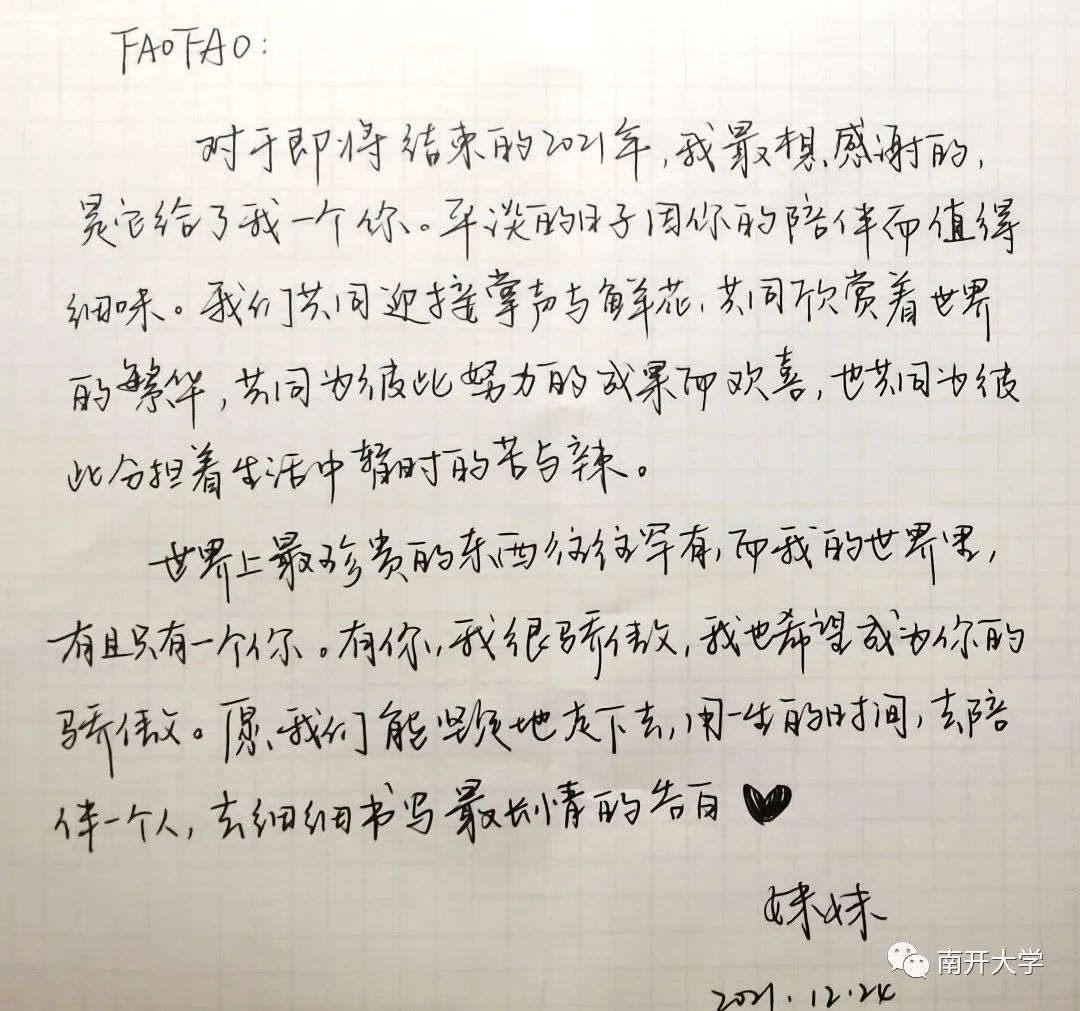 FAOFAO:
对于即将结束的2021年,我最想感谢的,
是它给了我一个你。平淡的日子因你的陪伴而值得
细味。我们共同迎接掌声与鲜花,共同欣赏着世界
的繁华,共同为彼此努力的成果而欢喜,也共同为彼
此分担着生活中暂时的苦与辣。
世界上最珍贵的东西往往罕有,而我的世界里,
有且只有一个你。有你,我很骄傲,我也希望成为你的
骄傲。愿我们能坚定地走下去,用一生的时间,去陪
伴一个人,去细细书写最长情的告白
妹妹
南开大学
2021.12.24